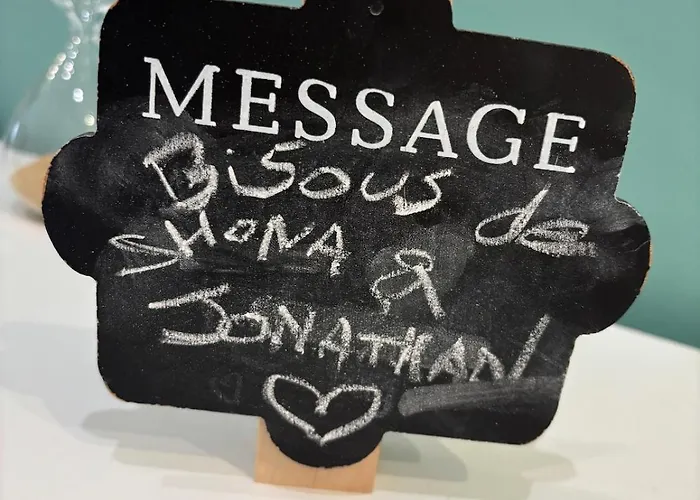 MESSAGE
Bisous de
SHONA &
JONATHAN